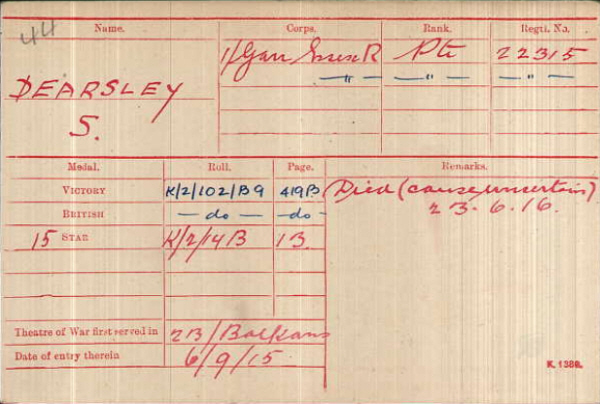 44
Name. Corps. Rank. Regtl. No.
1/Garr Essex R Pte 22315
DEARSLEY — " — — " — — " —
S.
Medal. Roll. Page. Remarks.
VICTORY K/2/102/B9 419B Died (cause uncertain)
BRITISH — do — — do — 23.6.16.
15 STAR K/2/14B 13.
Theatre of War first served in 2B/Balkans
Date of entry therein 6/9/15.
K. 1380.